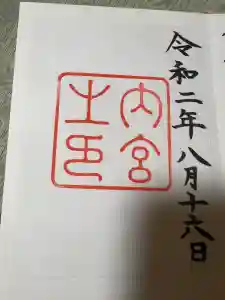 令和二年八月十六日
内宮
之印